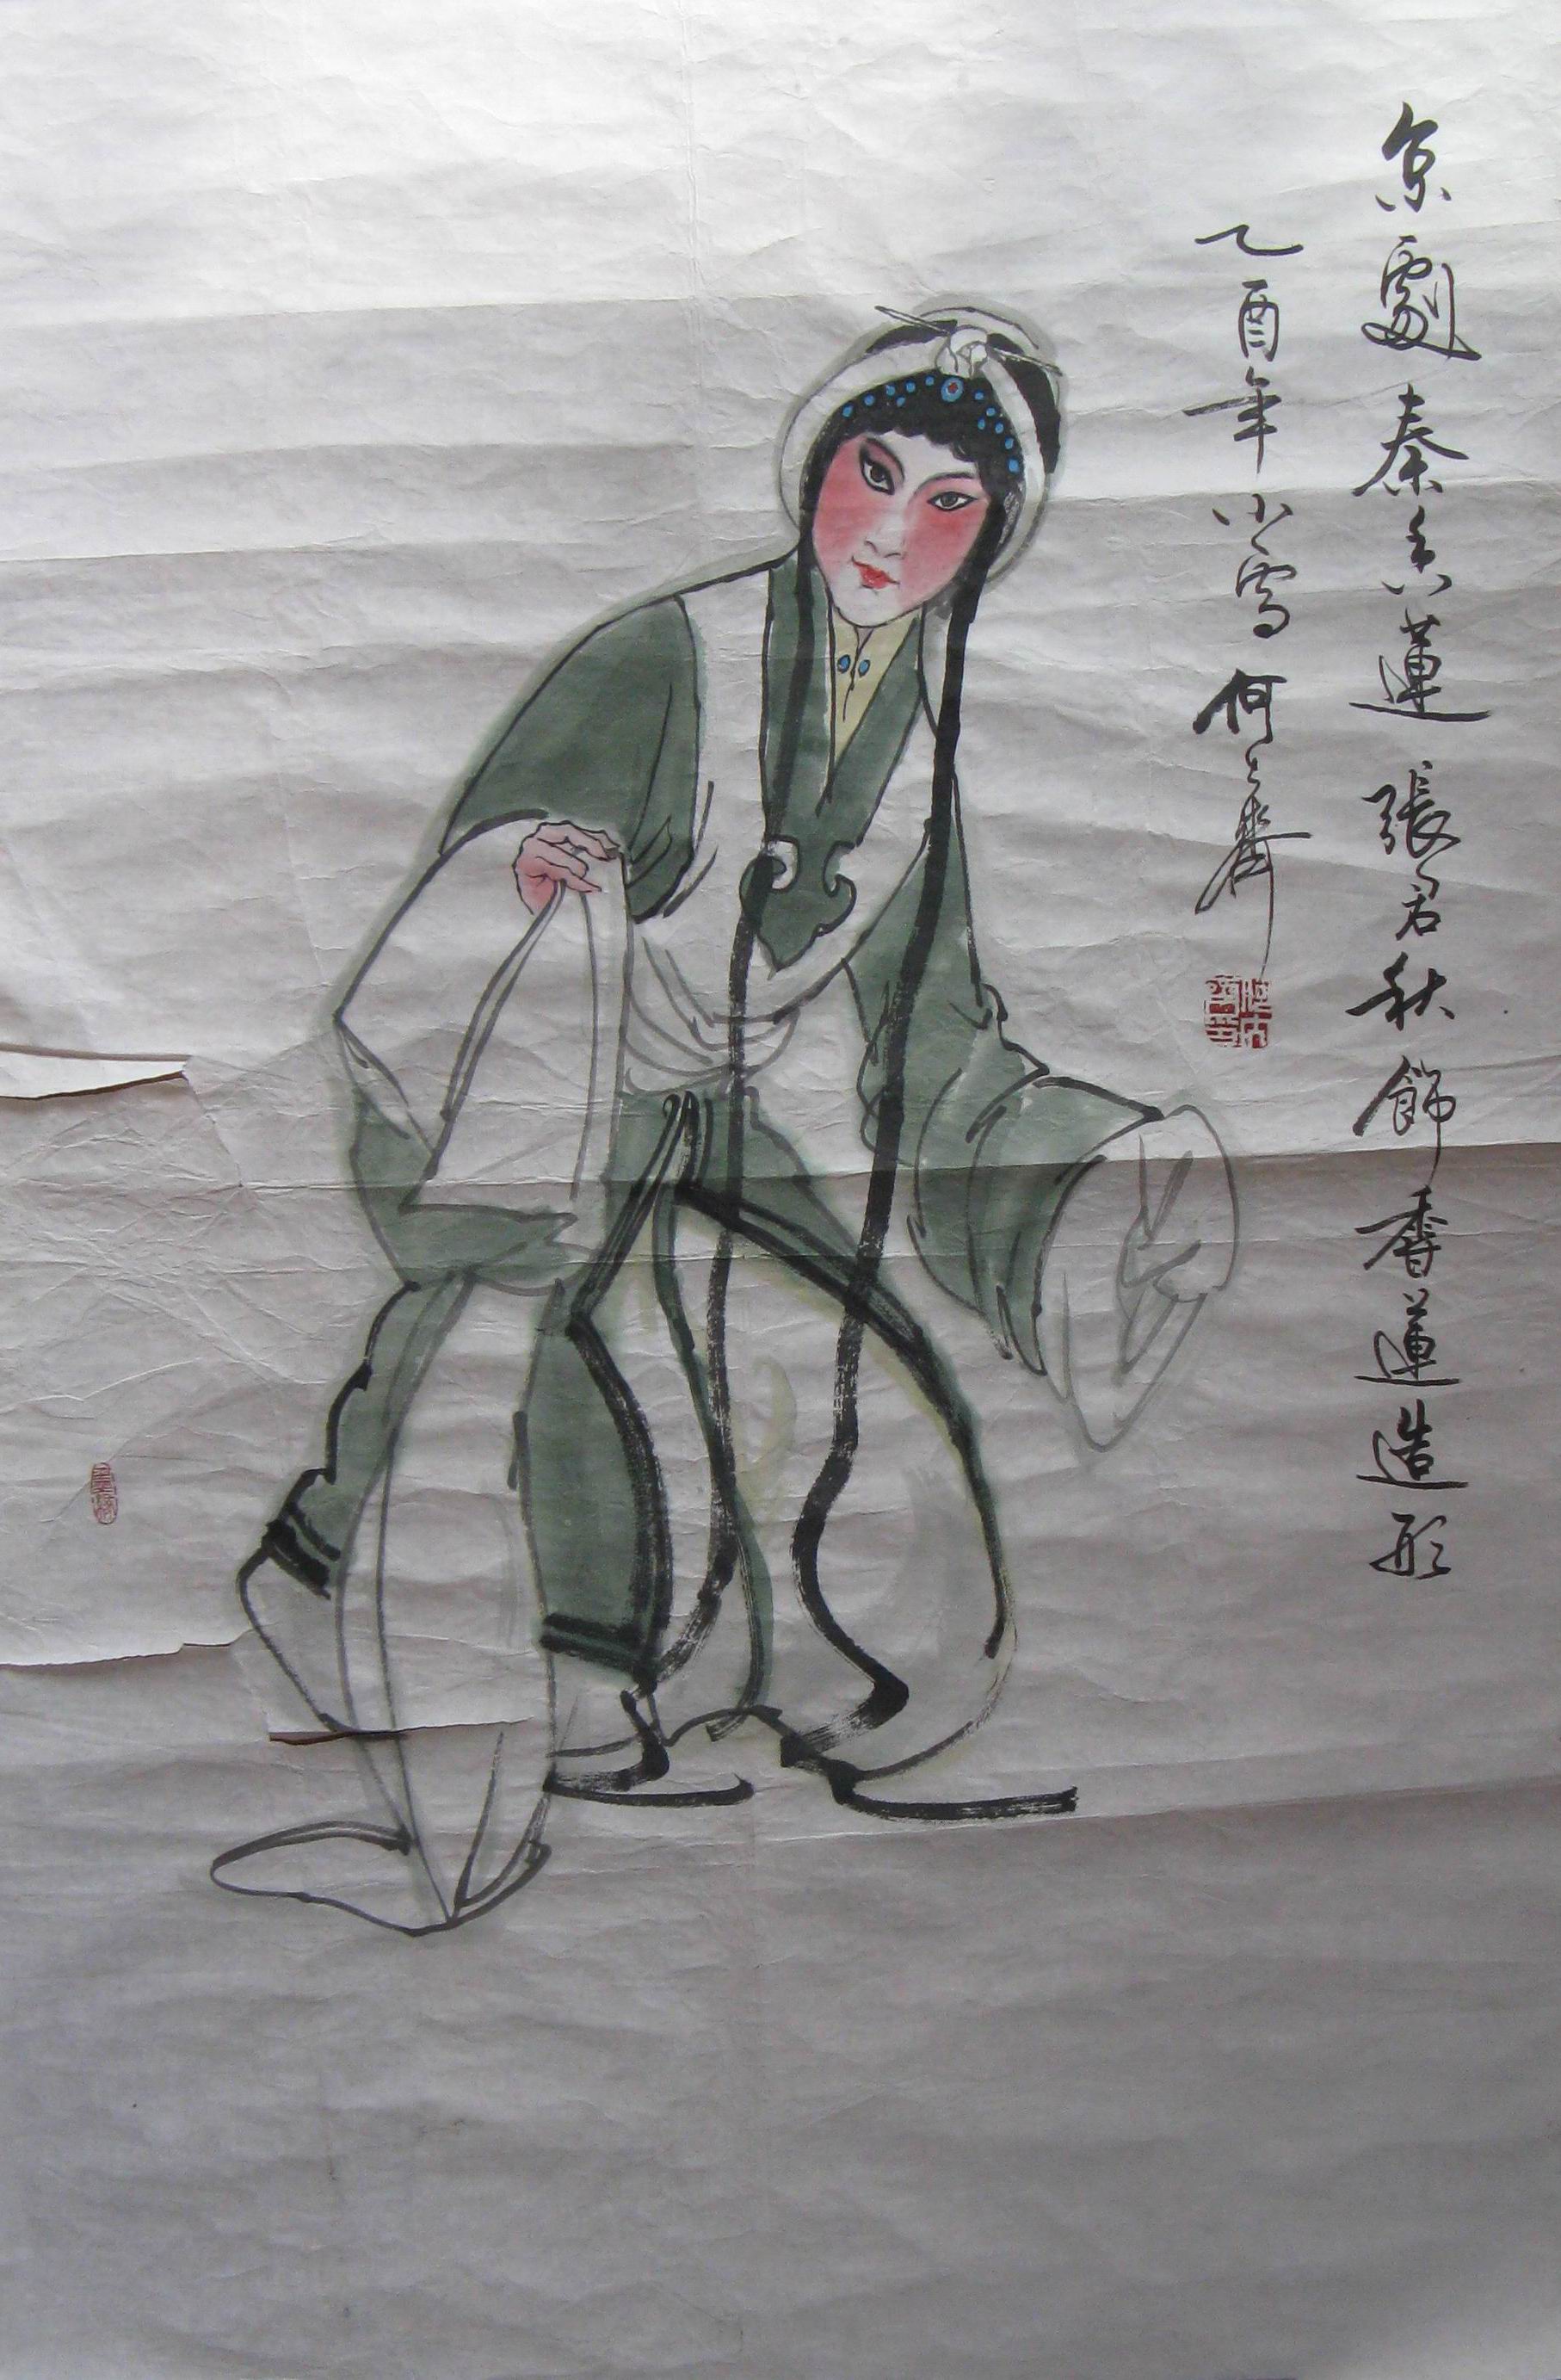 京劇秦香蓮張君秋飾香蓮造形
乙酉年小雪何